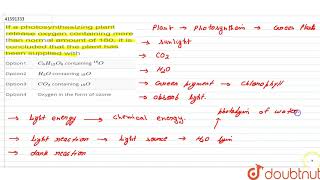 41591333
If a photosynthesizing plant
release oxygen containing more
than normal amount of 18O, it is
concluded that the plant has
been supplied with
Option1 C₆H₁₂O₆ containing ¹⁸O
Option2 H₂O containing ₁₈O
Option3 CO₂ containing ₁₈O
Option4 Oxygen in the form of ozone
Plant → Photosynthesis → Green Plants
→ Sunlight
→ CO₂
→ H₂O
→ Green pigment → Chlorophyll
→ absorb light.
photolysis of water
→ Light energy → Chemical energy.
→ Light reaction → Light source → H₂O
→ dark reaction
doubtnut